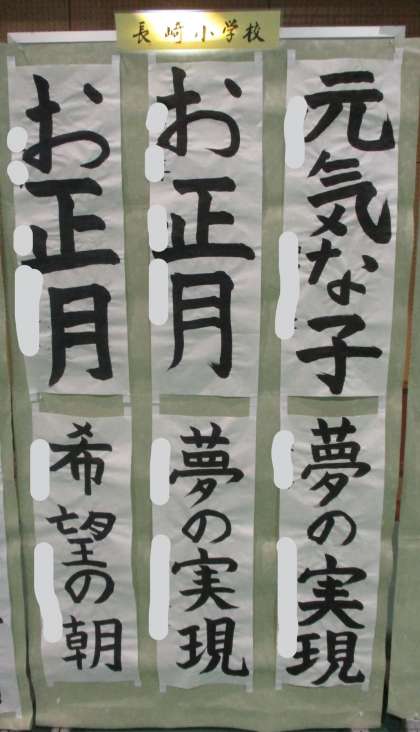 長崎小学校
元気な子
お正月
お正月
夢の実現
夢の実現
希望の朝